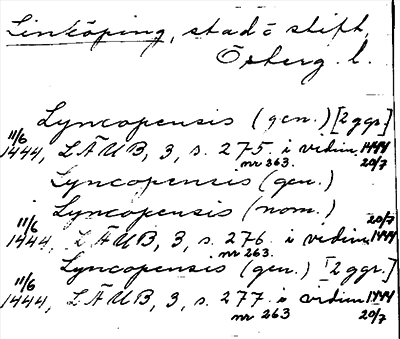 Linköping, stad o stift,
Östergl.
Lyncopensis (gen.) [2 ggr.]
11/6 1444, LÄUB, 3, s. 275. i vidim. 1444 20/7
nr 263.
Lyncopensis (gen.)
Lyncopensis (nom.)
11/6 1444, LÄUB, 3, s. 276. i vidim. 20/7 1444
nr 263.
Lyncopensis (gen.) [2 ggr.]
11/6 1444, LÄUB, 3, s. 277. i vidim 1444 20/7
nr 263